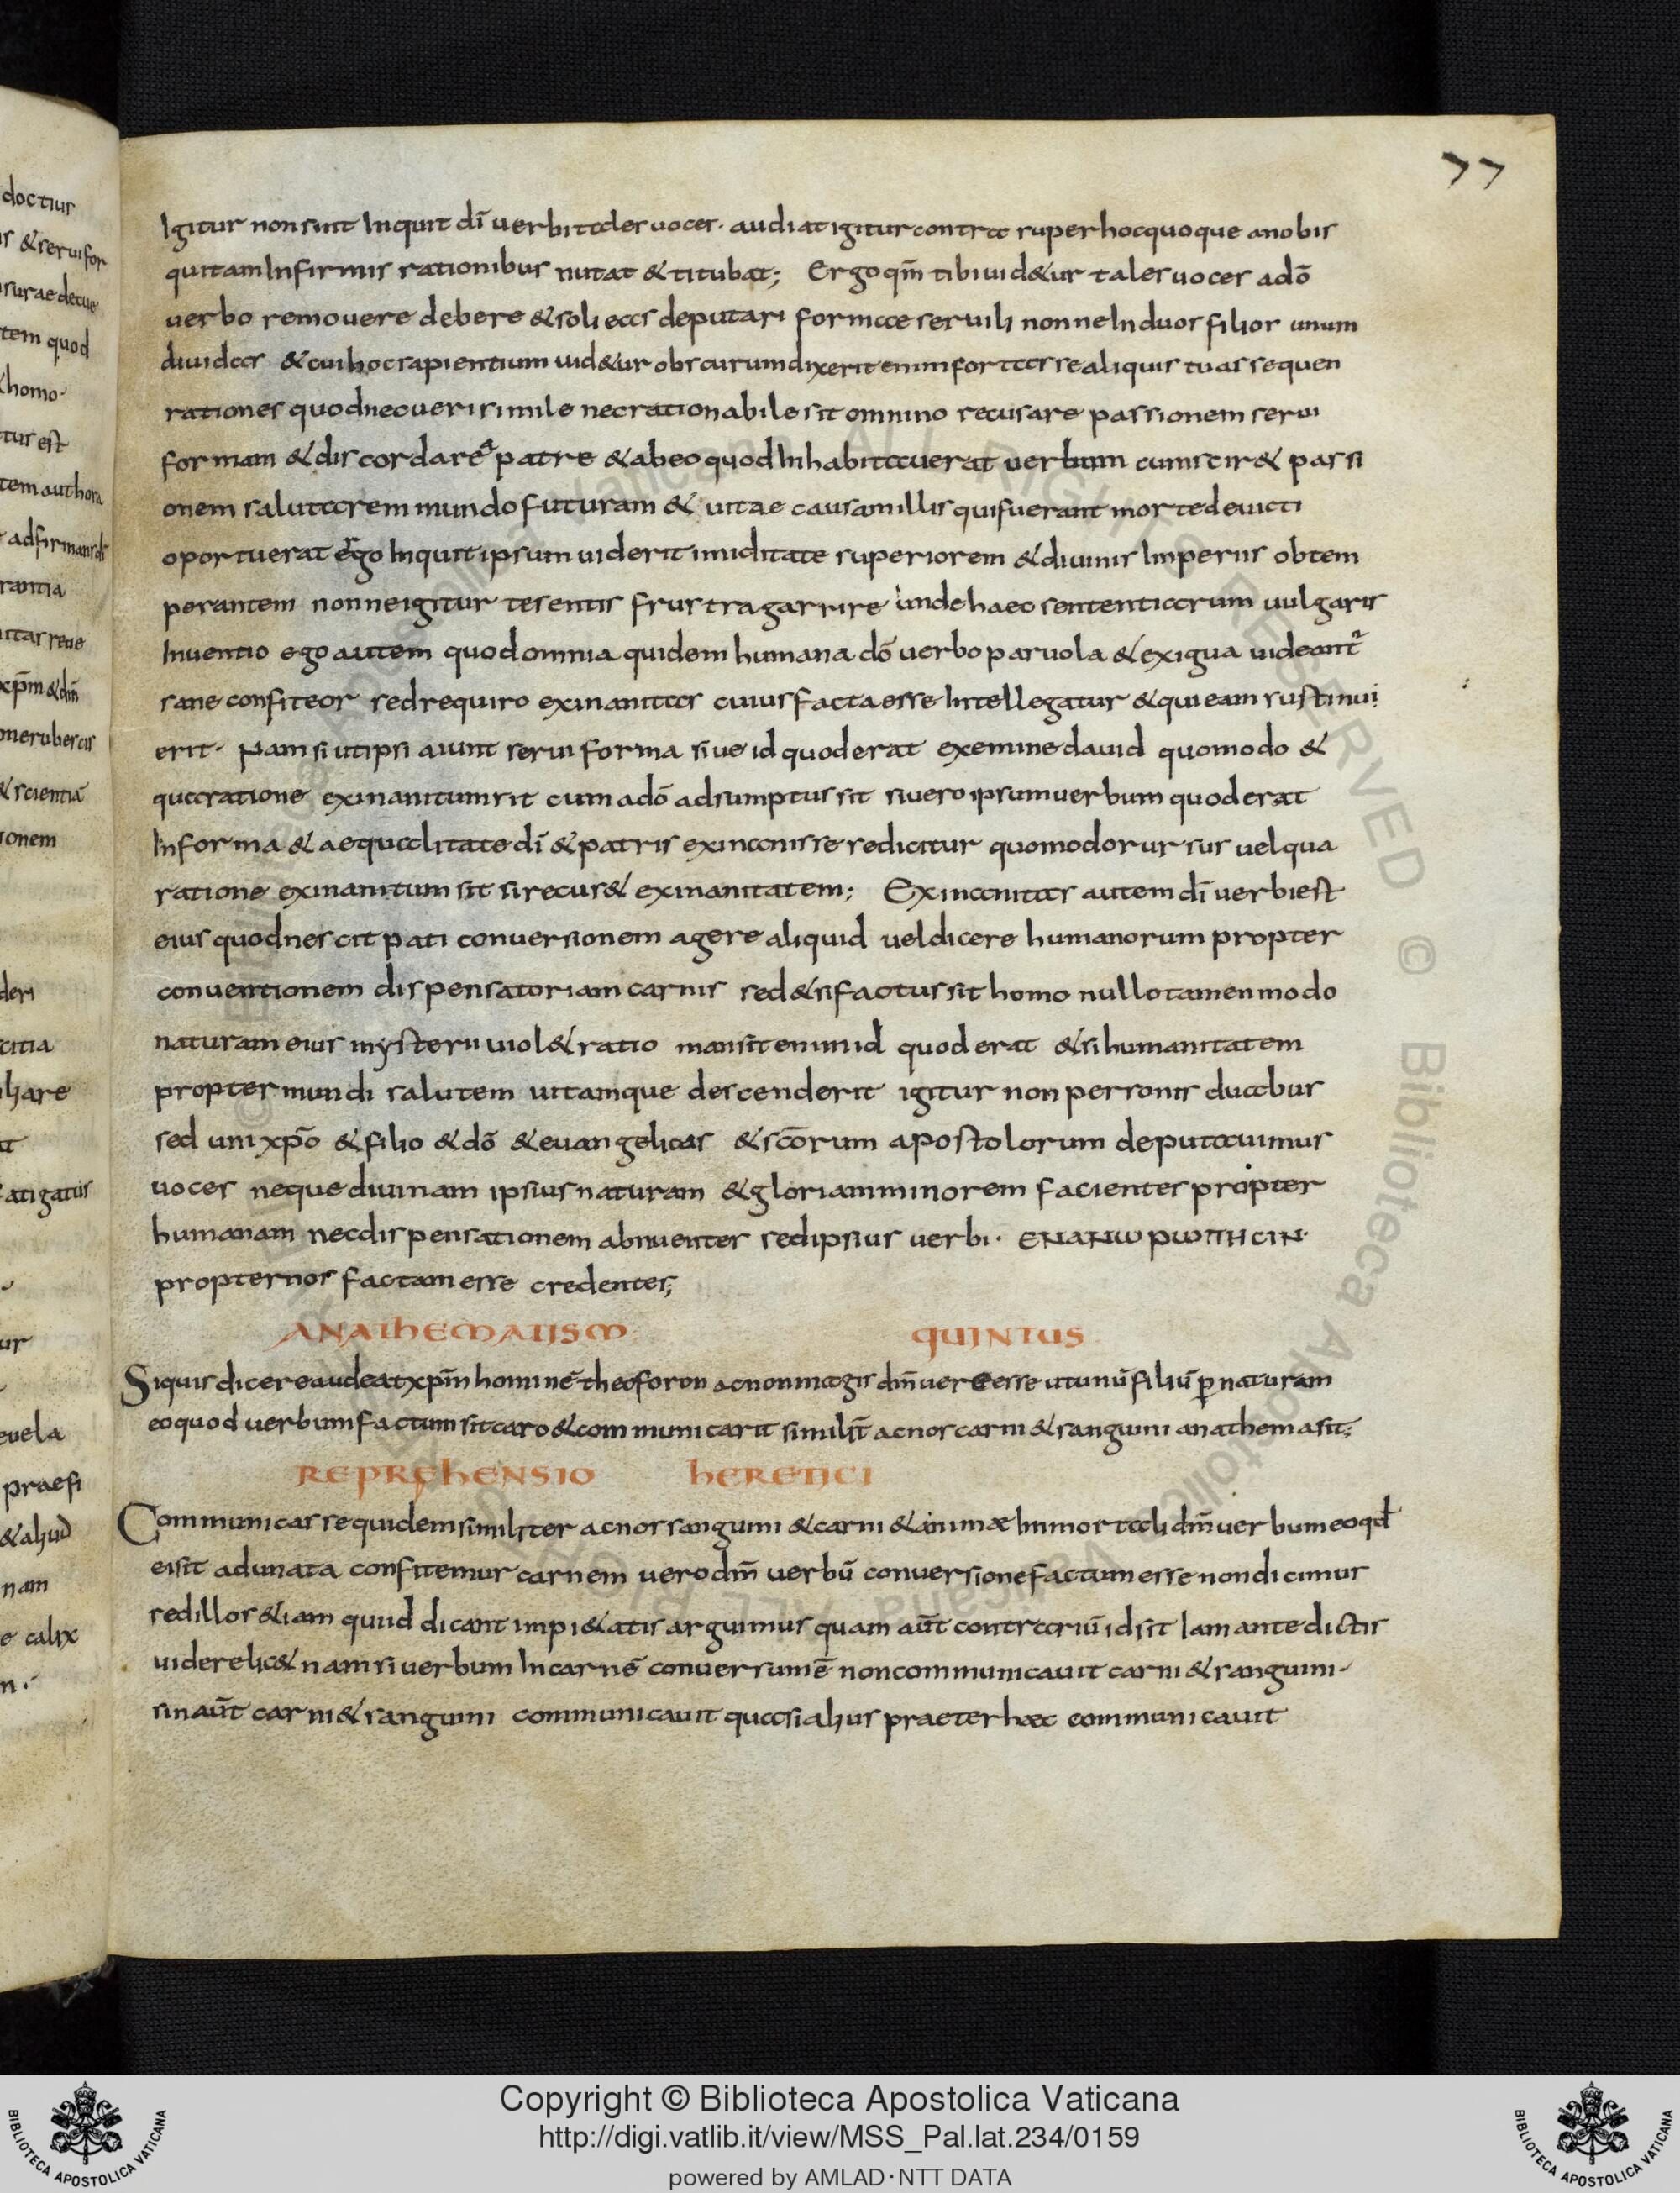 77
Igitur non sunt Inquit dī uerbi tales uoces· audiat igitur contra super hoc quoque anobis
qui tam Infirmis rationibus nutat & titubat; Ergo qm̄ tibi uid&ur tales uoces adō
uerbo remouere debere & soli eas deputari formae seruili nonne In duos filios unum
diuidas & cui hoc sapientium uid&ur obscurum dixerit enim fortasse aliquis tuas sequen
rationes quod nec uerisimile nec rationabile sit omnino recusare passionem serui
formam & discordare a patre & ab eo quod Inhabitauerat uerbum cum scir& passi
onem salutarem mundo futuram & uitae causam illis qui fuerant morte deuicti
oportuerat ergo Inquit ipsum uiderit imiditate superiorem & diuinis Imperiis obtem
perantem nonne igitur te sentis frustra garrire unde haec sententiarum uulgaris
Inuentio ego autem quod omnia quidem humana dō uerbo paruola & exigua uideant᷑
sane confiteor sed requiro exinanitas cuius facta esse Intellegatur & qui eam sustinui
erit· Nam si ut ipsi aiunt serui forma siue id quod erat exemine dauid quomodo &
qua ratione exinanitum sit cum adō adsumptus sit si uero ipsum uerbum quod erat
In forma & aequalitate dī & patris exinanisse se dicitur quomodo rursus uel qua
ratione exinanitum sit si recus& exinanitatem; Exinanitas autem dī uerbi est
eius quod nescit pati conuersionem agere aliquid uel dicere humanorum propter
conuentionem dispensatoriam carnis sed & si factus sit homo nullo tamen modo
naturam eius mysterii uiol& ratio mansit enim id quod erat & si humanitatem
propter mundi salutem uitamque descenderit igitur non personis duabus
sed uni xp̄o & filio & dō & euangelicas & sc̄orum apostolorum deputauimus
uoces neque diuinam ipsius naturam & gloriam minorem facientes propter
humanam nec dispensationem abnuentes sed ipsius uerbi· ENANω PωΠH CIN·
propter nos factam esse credentes;
ANATHEMATISM· QUINTUS
Si quis dicere audeat xpm̄ hominē theoforon ac non magis dm̄ uere esse ut unū filiū ꝑ naturam
eo quod uerbum factum sit caro & communicarit similit̄ ac nos carni & sanguini anathema sit;
REPREHENSIO HERETICI
Communicasse quidem similiter ac nos sanguini & carni & animae Inmortali dm̄ uerbum eo qd̄
ei sit adunata confitemur carnem uero dm̄ uerbū conuersione factum esse non dicimus
sed illos &iam quid dicant impi&atis arguimus quam aūt contrariū id sit Iam ante dictis
uidere lic& nam si uerbum In carnē conuersum ē non communicauit carni & sanguini·
sin aūt carni & sanguini communicauit quasi alius praeter haec communicauit
Copyright © Biblioteca Apostolica Vaticana
http://digi.vatlib.it/view/MSS_Pal.lat.234/0159
powered by AMLAD·NTT DATA